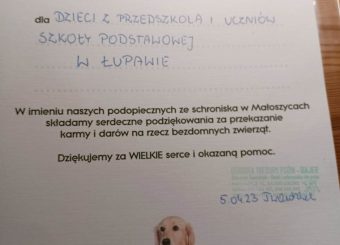 dla DZIECI Z PRZEDSZKOLA I UCZNIÓW
SZKOŁY PODSTAWOWEJ
W ŁUPAWIE
W imieniu naszych podopiecznych ze schroniska w Małoszycach
składamy serdeczne podziękowania za przekazanie
karmy i darów na rzecz bezdomnych zwierząt.
Dziękujemy za WIELKIE serce i okazaną pomoc.
5.04.23